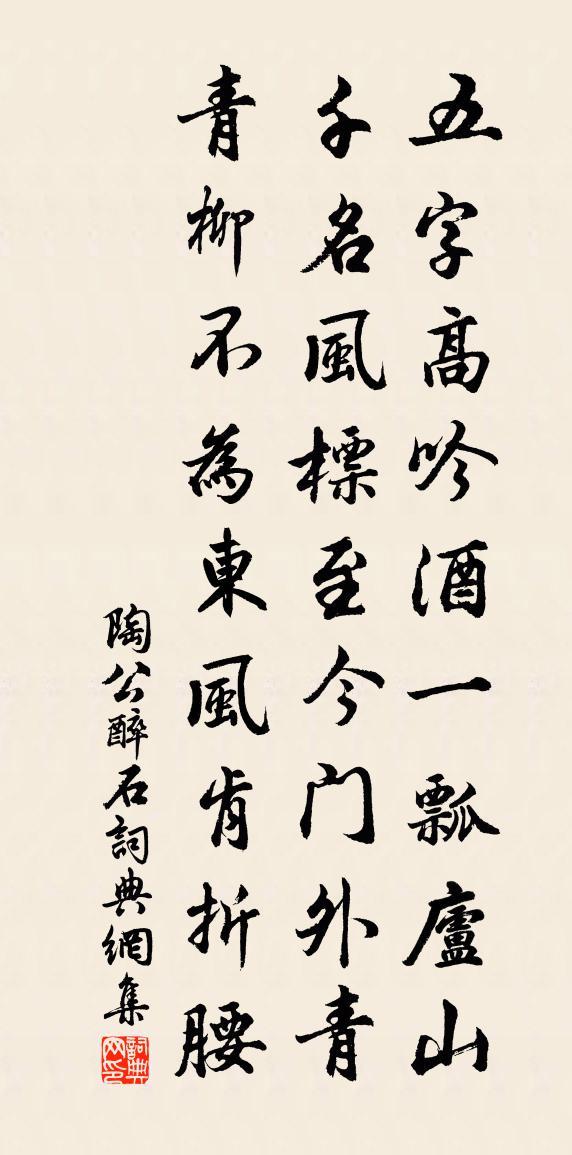 五字高吟酒一瓢廬山
千名風標至今门外青
青柳不為東風肯折腰
陶公醉石詞典網集
詞典网印